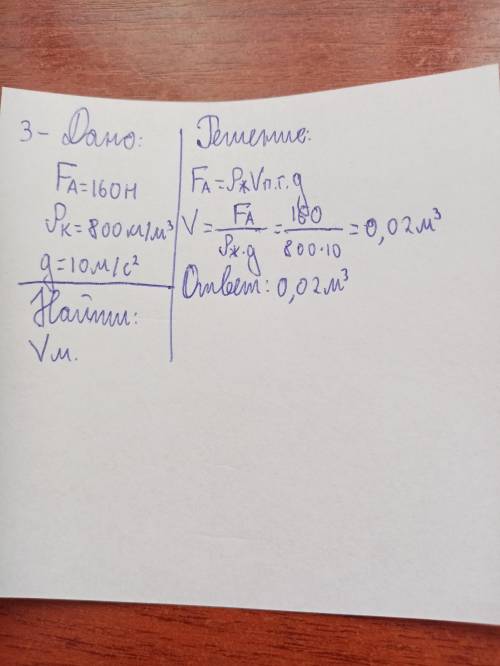 3 - Дано:
FА=160Н
ρк=800м/м³
g=10м/с²
Найти:
Vм.
Решение:
FА=ρж Vп.г. g
V = FА / ρж·g = 160 / 800·10 = 0,02м³
Ответ: 0,02м³